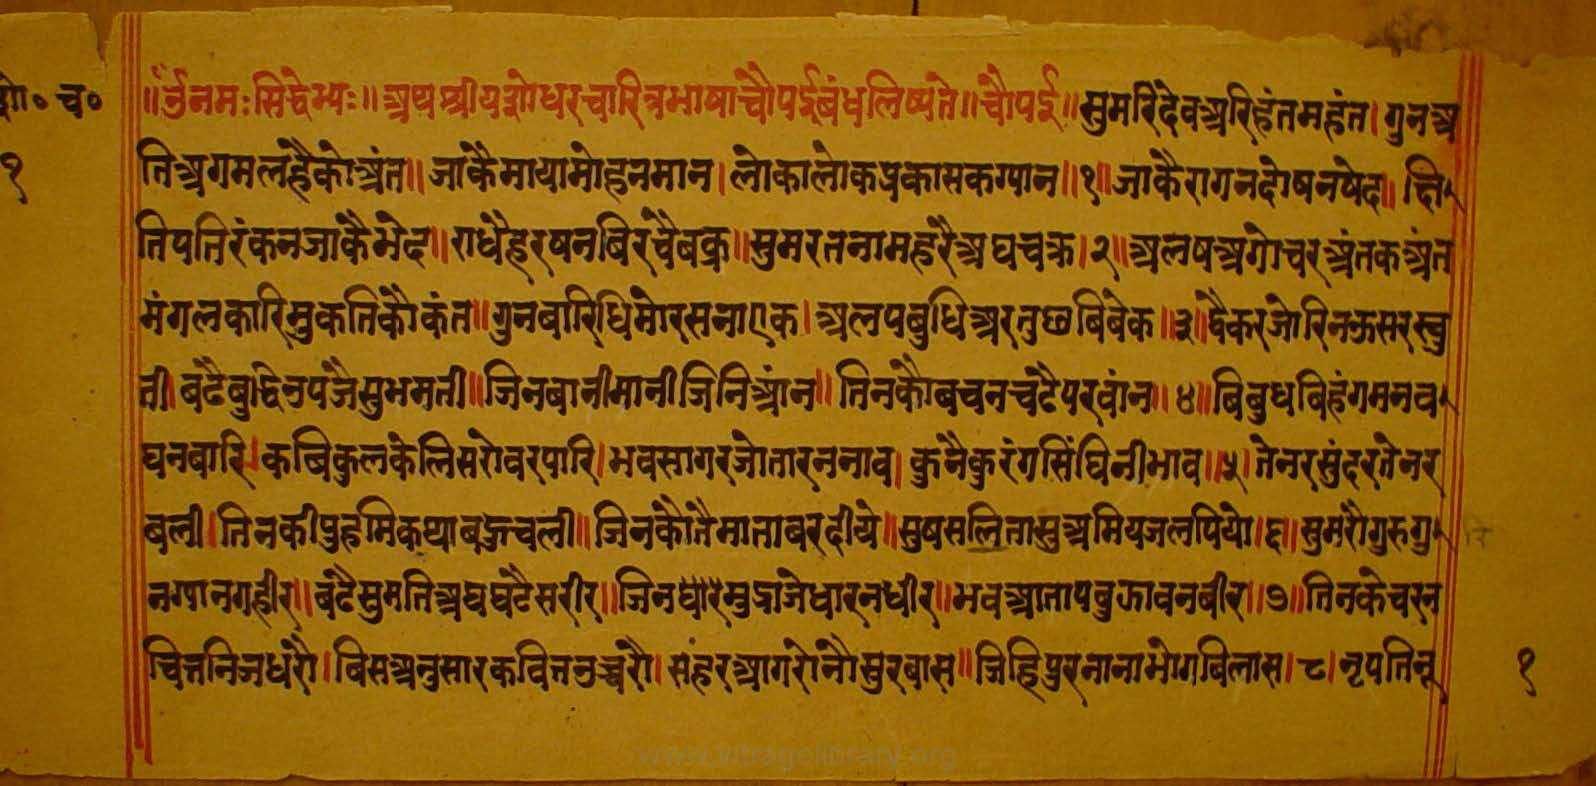 शो० च०
१
॥ॐ नमः सिद्धेभ्यः॥ अथ श्रीयशोधरचारित्रभाषाचौपईबंधलिष्यते॥ चौपई॥ सुमरिदेवअरिहंतमहंत। गुनअ
तिअगमलहैकोअंत॥ जाकैमायामोहनमान। लोकालोकप्रकासकग्यान॥१॥ जाकैरागनदोषनषेद॥ छि
तिपतिरंकनजाकैभेद॥ राधैहरषनबिरचैबक्र॥ सुमरतनामहरैअघचक्र।२॥ अलषअगोचरअंतकअंत
मंगलकारिमुकतिकौकंत॥ गुनबारिधिमोरसनाएक। अलपबुधिअरतुछबिबेक॥३॥ द्वैकरजोरिनऊसरस्वु
ती। बढैबुद्धिनपजैसुभमती॥ जिनबानीमानीजिनिआंन॥ तिनकौबचनचढैपरवांन॥४॥ बिबुधबिहंगमनव
घनबारि। कबिकुलकेलिसरोवरपारि। भवसागरजोतारननाव। कुनैकुरंगसिंघिनीभाव॥५। तेनरसुंदरतेनर
बली। तिनकीपुहमिकथाबऊचली॥ जिनकौतैमाताबरदीये॥ सुषसलितासुअमियजलपियो।६॥ सुमरौगुरुगु
नग्यानगहीर॥ बढैसुमतिअघघटैसरीर॥ जिनधारिमुद्राजेधारनधीर॥ भवआतापबुझावनबीर॥७॥ तिनकेचरन
चित्तनिजधरौ। बिसअनुसारकवित्तउच्चरौ। संहरआगरोनौसुरबास॥ जिहिपुरनानाभोगबिलास।८। नृपतिनू
१
www.vitragelibrary.org